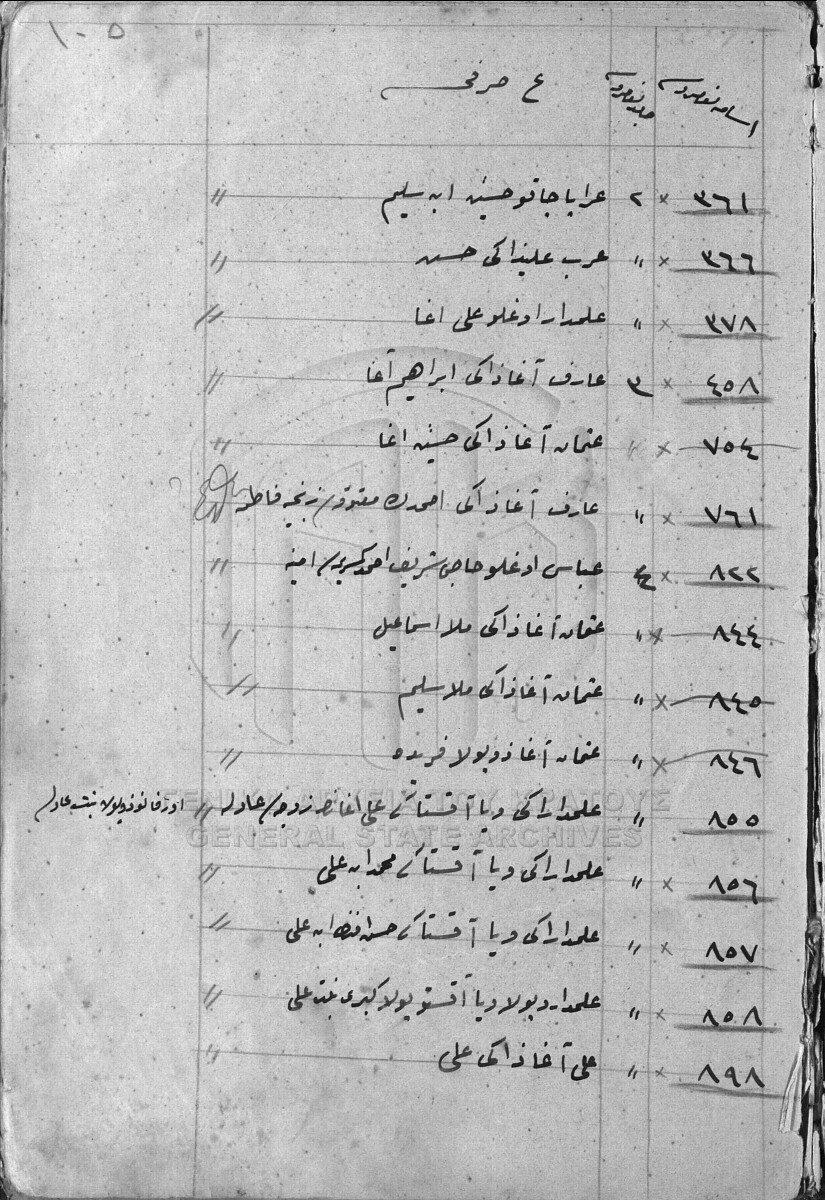 ١٠٥
اسامی نومروسی جلد نومروسی ع حرفی
٣٦١ × ٢ عراباجاقو حسین ابن سلیم //
٣٦٦ × // عرب علیذاکی حسن //
٣٧٨ × // علمدار اوغلو علی اغا //
٤٥٨ × ٣ عارف آغاذاکی ابراهیم آغا //
٧٥٤ × // عثمان آغاذاکی حسین اغا //
٧٦١ × // عارف آغاذاکی احمدك زنجیه فاطمه
٨٢٢ × ٤ عباس اوغلو حاجی شریف احمد امینه //
٨٤٤ × // عثمان آغاذاکی ملا اسماعیل //
٨٤٥ × // عثمان آغاذاکی ملا سلیم //
٨٤٦ × // عثمان آغاذوپولا فریده //
٨٥٥ // علمداراکی ویا آقستاکی علی اغانك زوجه‌سی عادله // بنت عادل
٨٥٦ × // علمداراکی ویا آقستاکی محمد ابن علی //
٨٥٧ × // علمداراکی ویا آقستاکی حسن ابن علی //
٨٥٨ × // علمداروپولا ویا آقستوپولا کبری بنت علی //
٨٩٨ × // علی آغاذاکی علی //
ΓΕΝΙΚΑ ΑΡΧΕΙΑ ΤΟΥ ΚΡΑΤΟΥΣ
GENERAL STATE ARCHIVES